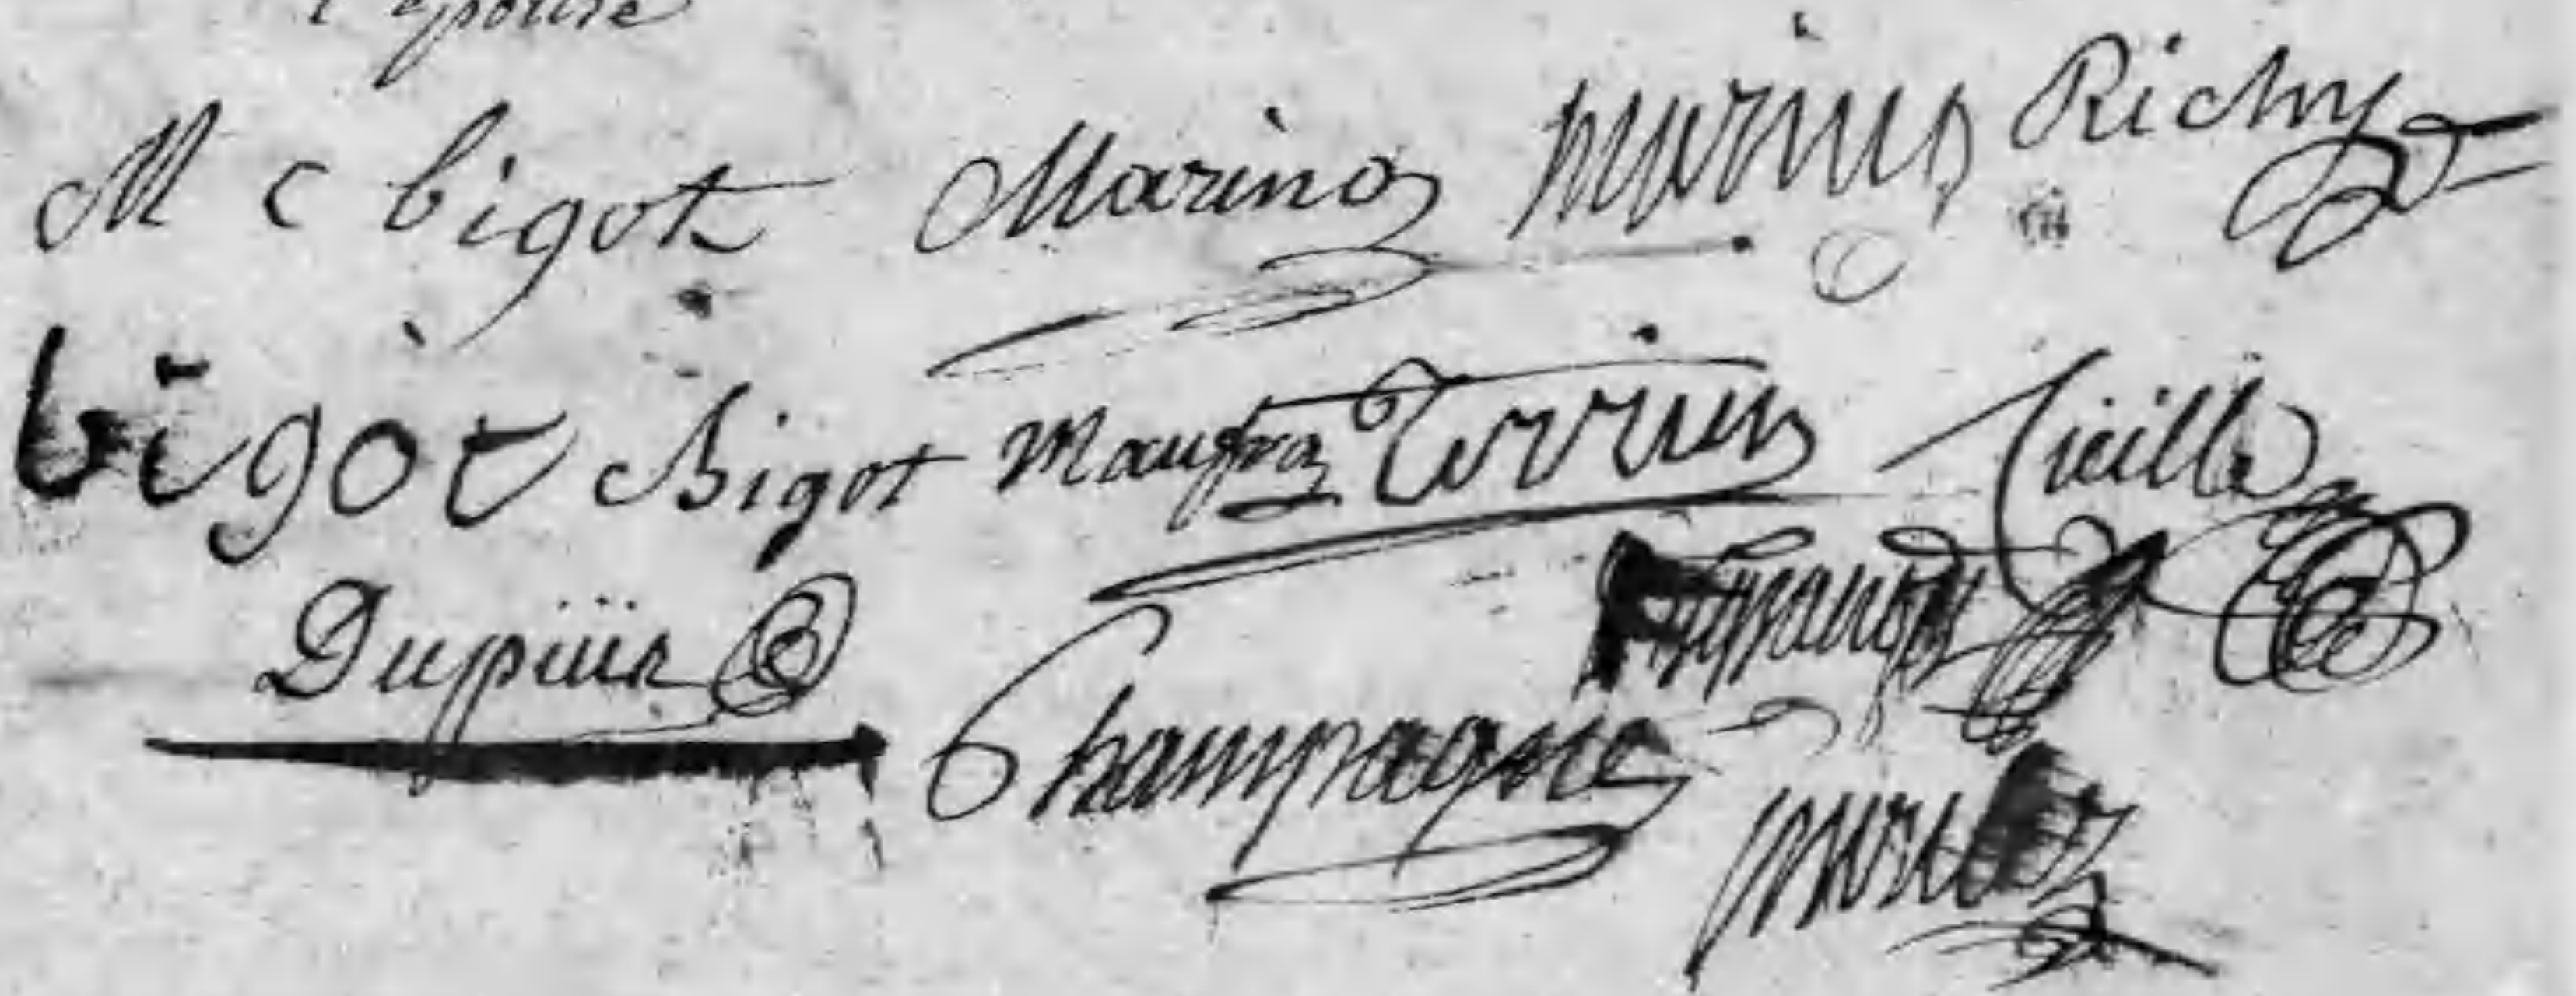 l'épouse
M C bigot Marino Marius Richy
bigot Bigot Maufra Terrien Vieille
Dupuis
Champagne